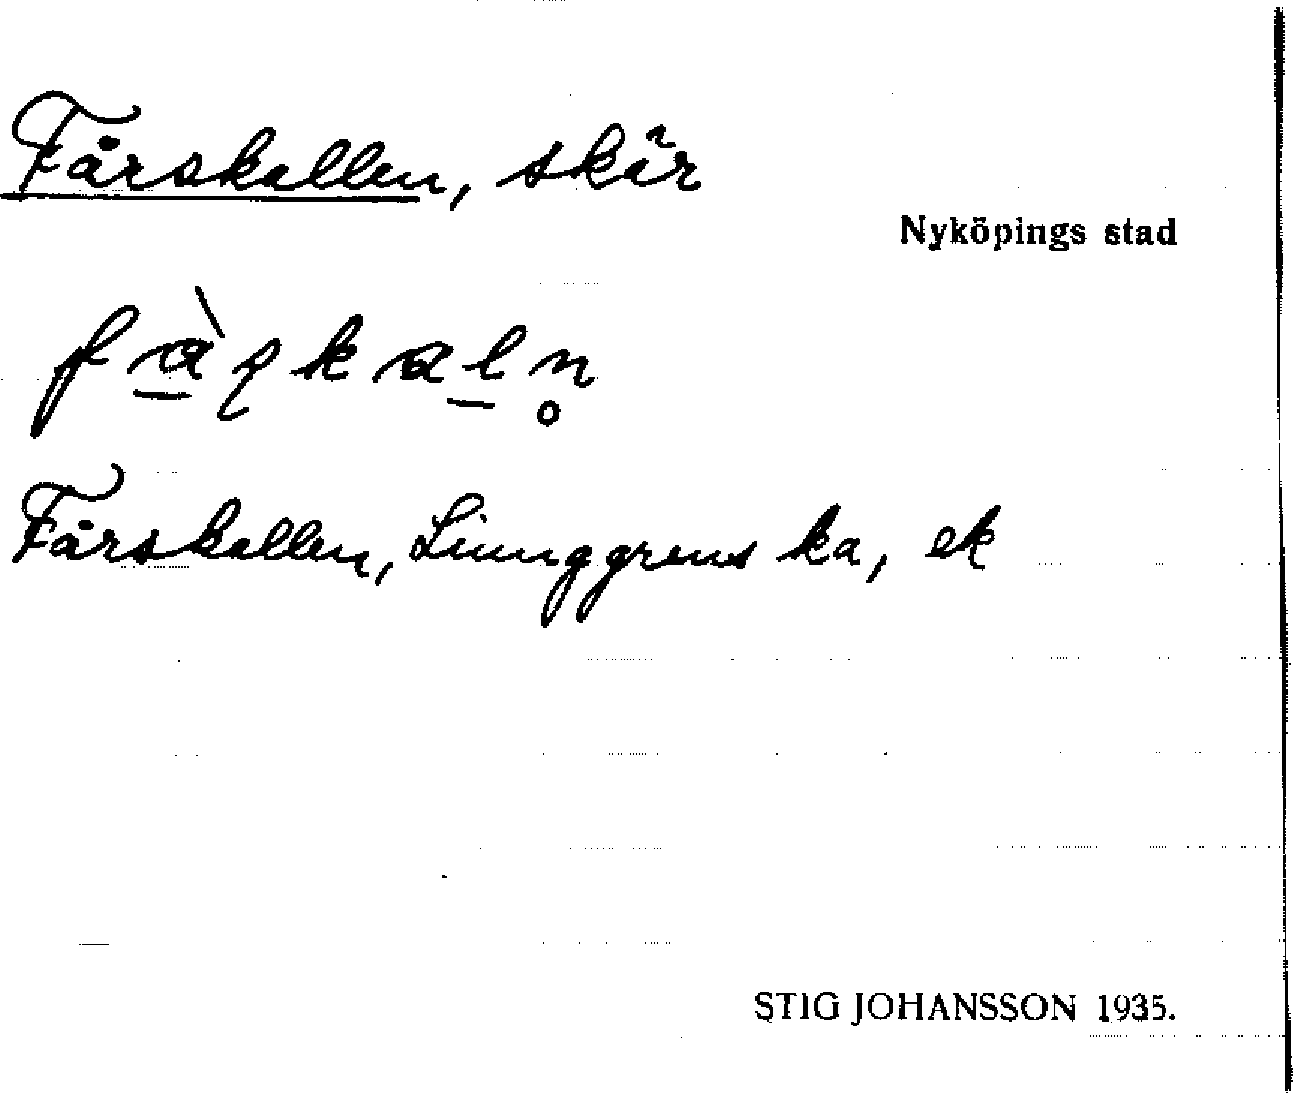 Fårskallen, skär
Nyköpings stad
Fårskallen, Liunggrens ka, ek
STIG JOHANSSON 1935.